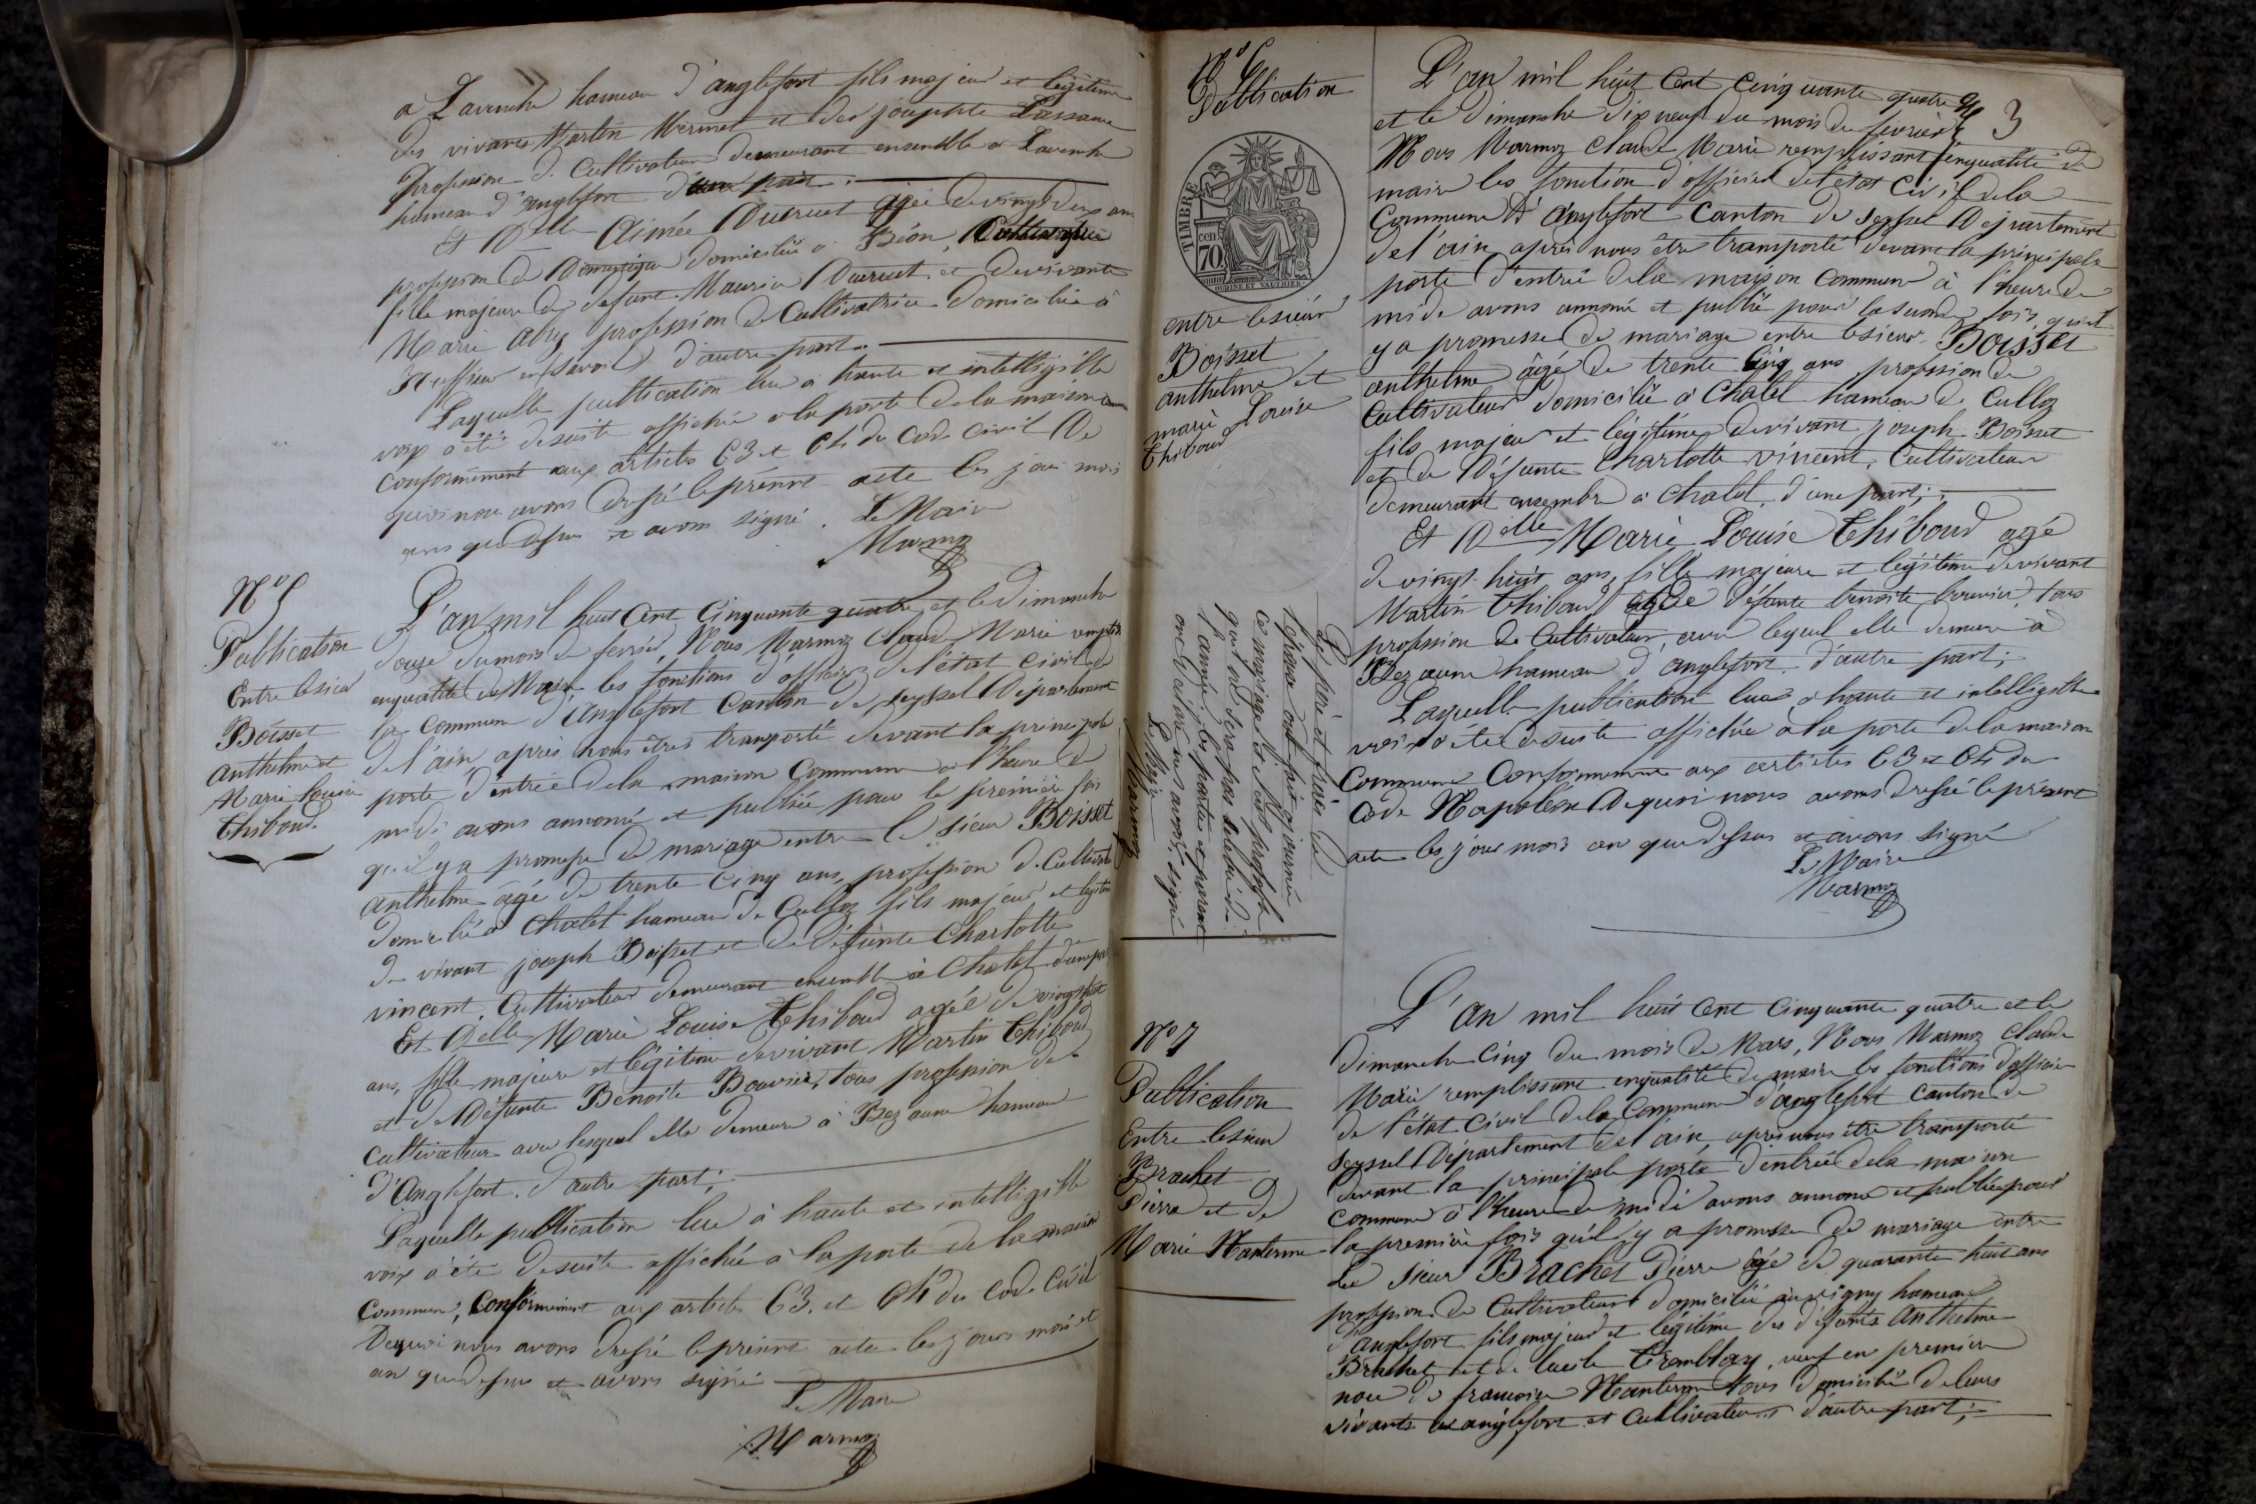 a Lavanche hameau d'anglefort fils majeur et légitime
des vivants Martin Mermet et de josephte Lassaue
Profession de Cultivateur demeurant ensemble a Lavanche
hameau d'anglefort d'une part.
Et Delle Aimée Ducruet agée de vingt deux ans
profession de domestique domiciliée à Béon, Cultivatrice
fille majeure de défunt Maurice Ducruet et de vivante
Marie profession de Cultivatrice domiciliée à
d'autre part.
Laquelle publication lue à haute et intelligible
voix a été desuite affichée a la porte de la maison com
conformément aux articles 63 et 64 du Code Civil De
quoi nous avons dressé le présent acte les jour mois
ans que dessus et avons signé. Le Maire
Marmoz
N° 5
Publication
Entre le sieur
Boisset
anthelme et
Marie Louise
Thiboud.
L'an mil huit Cent Cinquante quatre et le Dimanche
douze du mois de fevrier, Nous Marmoz Claude Marie remplis
enqualité de Maire les fonctions d'officier de l'état civil de
la Commune d'Anglefort Canton de seyssel Département
de l'ain après nous êtres transporté devant la principale
porte d'entrée de la maison Commune a l'heure de
midi avons annoncé et publiée pour la première fois
qu'il y a promesse de mariage entre le sieur Boisset
anthelme âgé de trente Cinq ans, profession de Cultivat
domicilié à Chatel hameau de Culloz fils majeur et legitim
de vivant joseph Boisset et de défunte Charlotte
vincent, Cultivateur demeurant ensemble à Chatel d'une part
Et Delle Marie Louise Thiboud agée de vingt huit
ans, fille majeure et légitime de vivant Martin Thiboud
et de Défunte Benoite Bouvier, tous profession de
Cultivateur avec lesquel elle demeure à Bezaune hameau
d'Anglefort. d'autre part;
Laquelle publication lue à haute et intelligible
voix a été desuite affichée à la porte de la maison
Commune, Conformément aux articles 63. et 64 du Code Civil
Dequoi nous avons dressé le présent acte les jours mois et
an que dessus et avons signé
Le Maire
Marmoz
N° 6
Publication
TIMBRE
cen
70
entre le sieur
Boisset
anthelme et
marie Louise
Thiboud
Le père et frère de
l'épouse ont fait ajournée
ce mariage
qu'il ne sera pas
les parties et parents
ont nous avons signé
Le Maire
Marmoz
3
L'an mil huit Cent Cinquante quatre
et le Dimanche dix neuf du mois de fevrier
Nous Marmoz Claude Marie remplissant enqualité de
maire les fonction d'officier de l'état Civil de la
Commune d'Anglefort Canton de seyssel Département
de l'ain après nous être transporté devant la principale
porte d'entrée de la maison Commune à l'heure de
midi avons annoncé et publié pour la seconde fois qu'il
y a promesse de mariage entre le sieur Boisset
anthelme âgé de trente cinq ans, profession de
Cultivateur domicilié à Chatel hameau de Culloz
fils majeur et légitime de vivant joseph Boisset
et de Défunte Charlotte vincent, Cultivateur
demeurant ensemble à Chatel. d'une part;
Et Delle Marie Louise Thiboud agé
de vingt huit ans, fille majeure et légitime de vivant
Martin Thiboud et de défunte benoite bouvier, tous
profession de Cultivateur, avec lequel elle demeure à
Bezaune hameau d'anglefort. d'autre part;
Laquelle publication lue à haute et intelligible
voix a été desuite affichée a la porte de la maison
Commune Conformément aux articles 63 et 64 du
Code Napoléon. Dequoi nous avons dressé le présent
acte les jour mois an que dessus et avons signé
Le Maire
Marmoz
N° 7
Publication
Entre le sieur
Brachet
Pierre et de
Marie Nanterme
L'an mil huit Cent Cinquante quatre et le
dimanche Cinq du mois de Mars, Nous Marmoz Claude
Marie remplissant enqualité de maire les fonctions d'officier
de l'état Civil de la Commune d'anglefort Canton de
seyssel Département de l'ain, après nous être transporté
devant la principale porte d'entrée dela maison
Commune à l'heure de midi avons annoncé et publiée pour
la première fois qu'il y a promesse de mariage entre
Le Sieur Brachet Pierre agé de quarante huit ans
profession de Cultivateur domicilié hameau
d'anglefort fils majeur et légitime des défunts Anthelme
Brachet et de lucile Tremblay, veuf en première
noce de francoise Nanterme tous domiciliés de leurs
vivants a anglefort et Cultivateurs d'autre part;